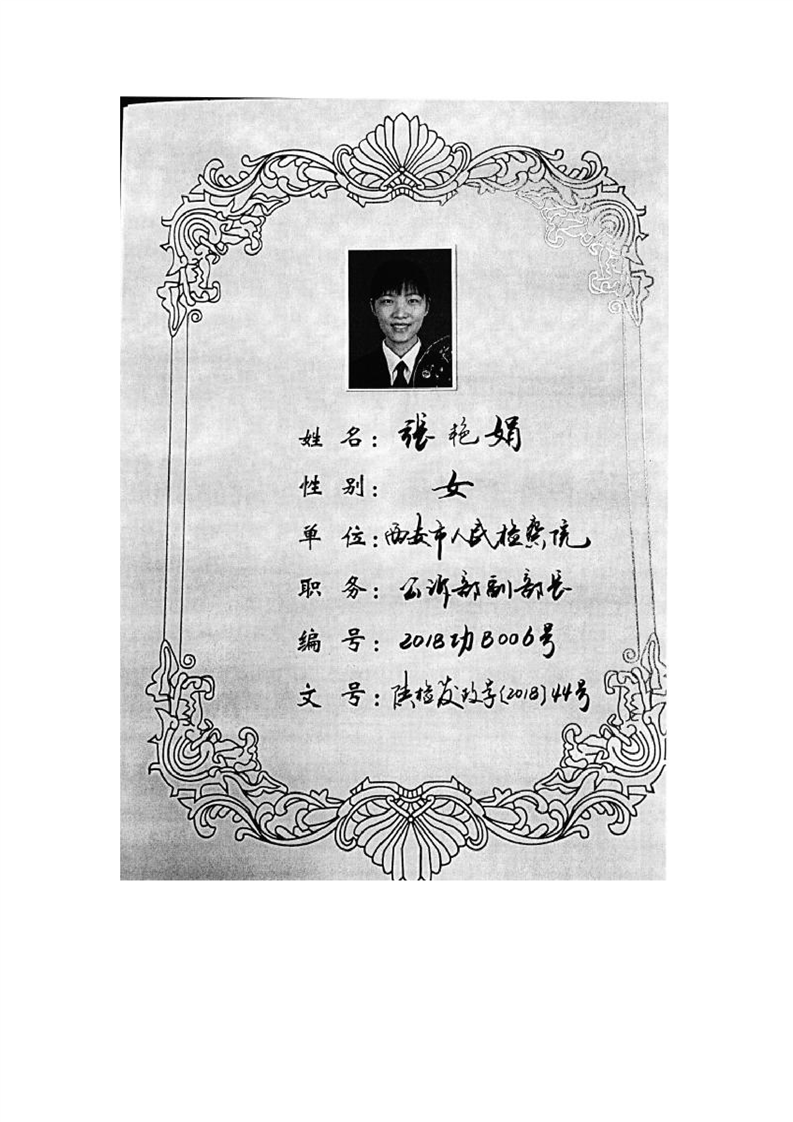 姓 名：张艳娟
性 别：女
单 位：西安市人民检察院
职 务：公诉部副部长
编 号：2018功B006号
文 号：陕检发政字(2018)44号